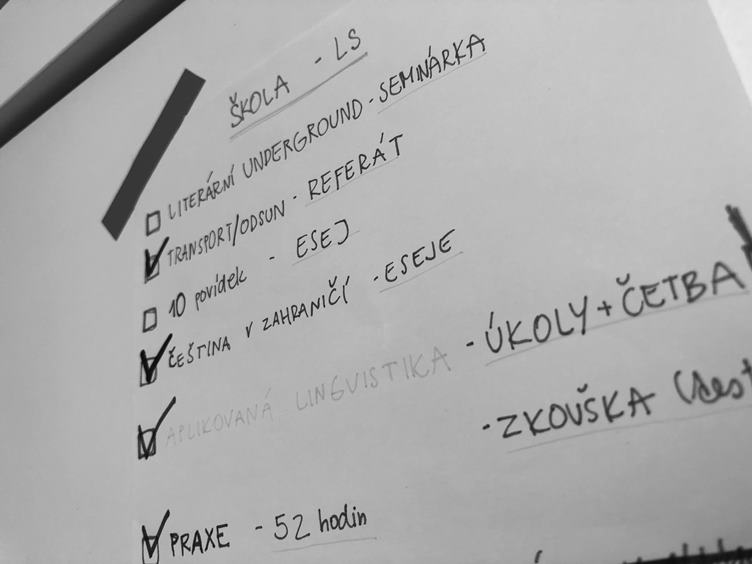 ŠKOLA - LS
LITERÁRNÍ UNDERGROUND - SEMINÁRKA
TRANSPORT/ODSUN - REFERÁT
10 povídek - ESEJ
ČEŠTINA V ZAHRANIČÍ - ESEJE
APLIKOVANÁ LINGVISTIKA - ÚKOLY + ČETBA
- ZKOUŠKA
PRAXE - 52 hodin